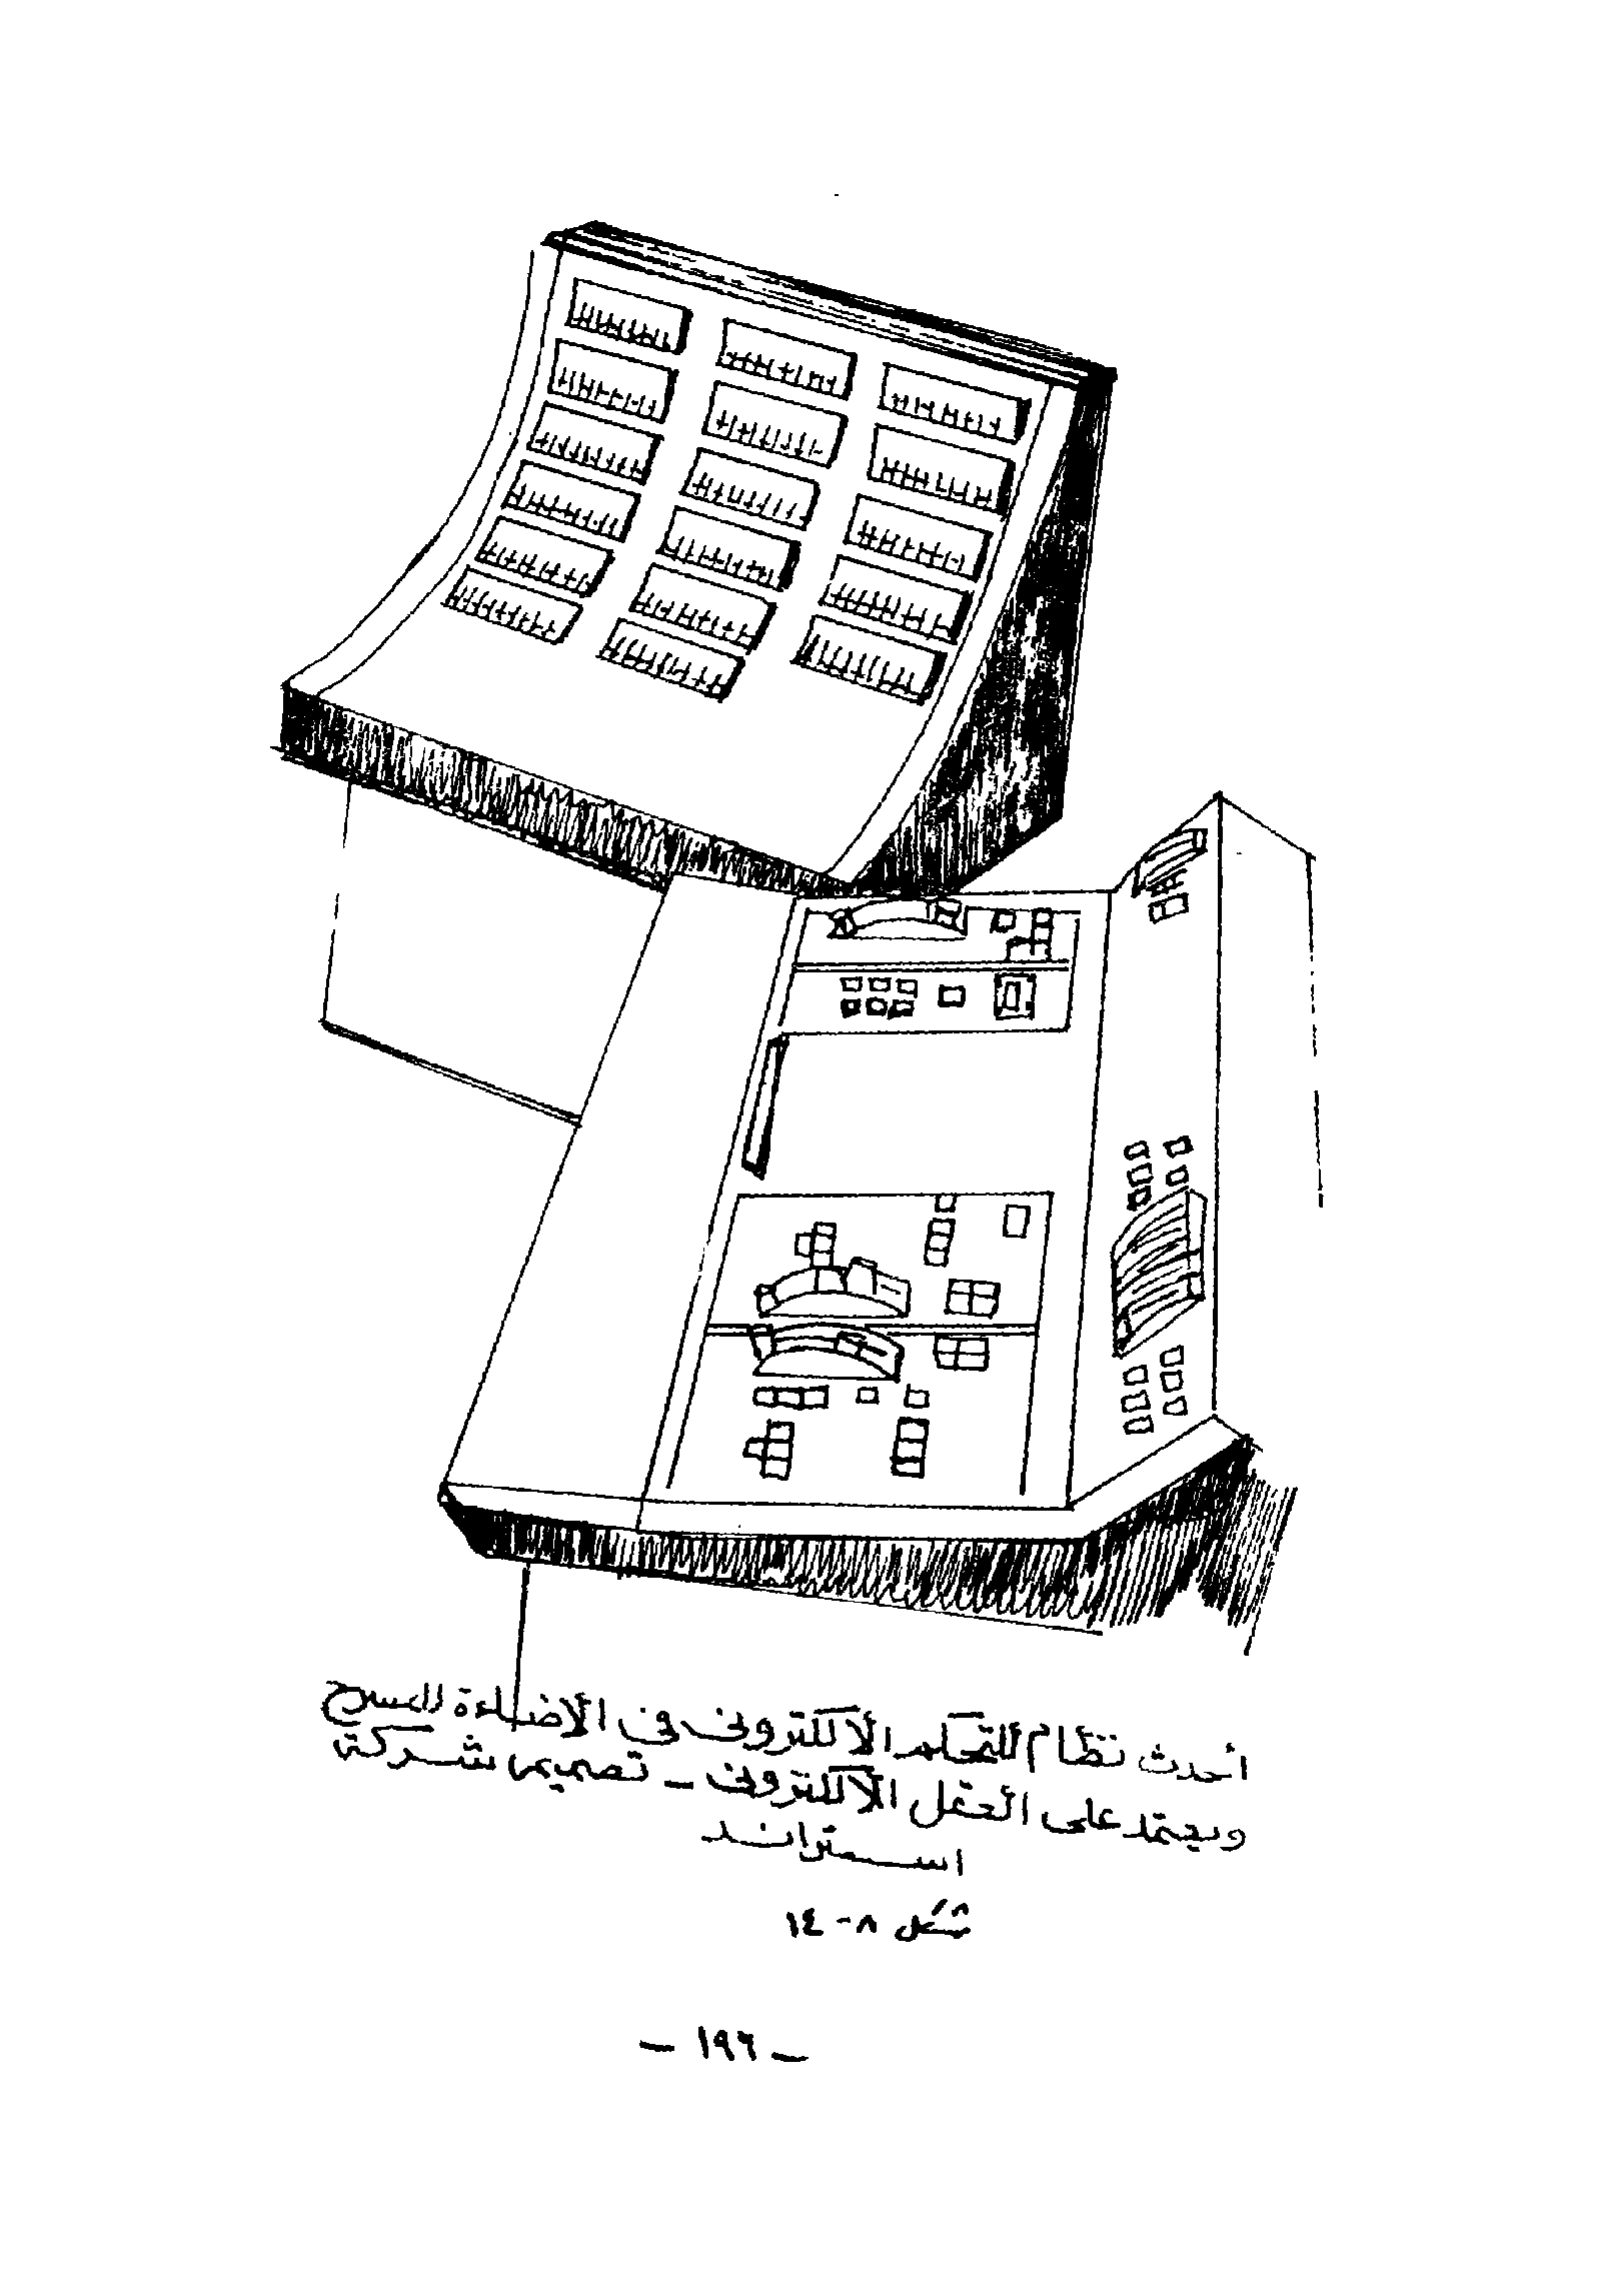 أحدث نظام للتحكم الألكترونى فى الأضاءة للمسرح
ويعتمد على العقل الألكترونى – تصميم شركة
استراند
شكل ٨-١٤
– ١٩٦ –